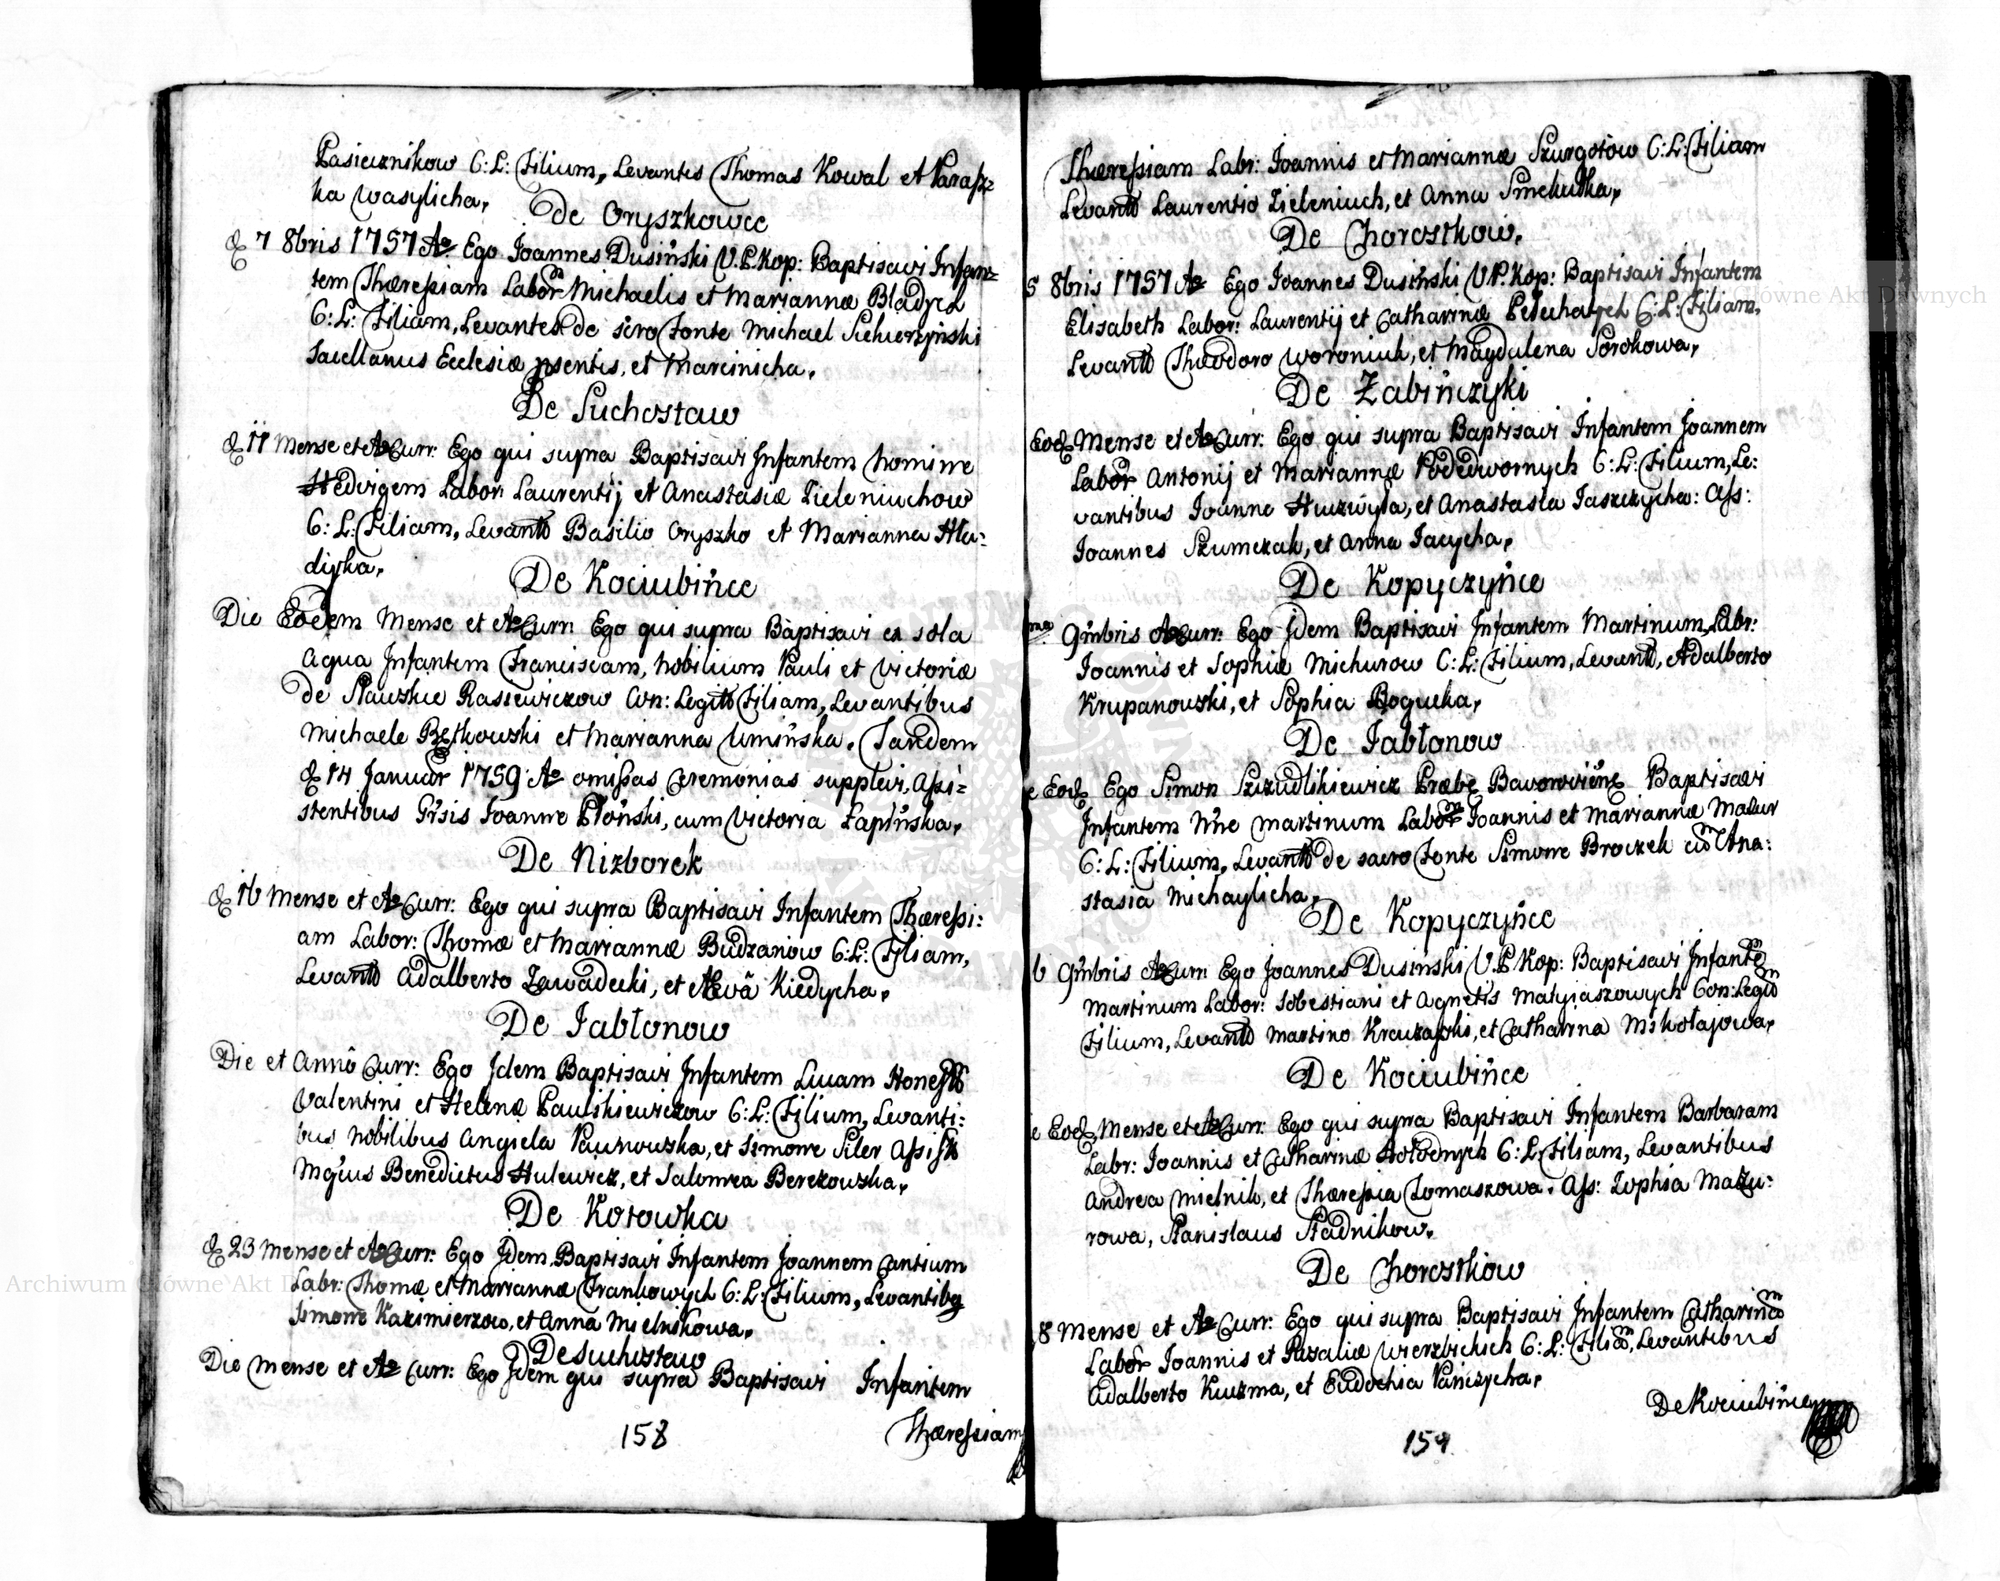 Pasiecznikow C: L: Filium, Levantes Thomas Kowal et Parasz=
ka Wasylicha,
De Oryszkowce
D 7 8bris 1757 Ao Ego Joannes Dusiński V.P.Kop: Baptisavi Infan=
tem Thæressiam Labor Michaelis et Mariannæ Bladych
C: L: Filiam, Levantes de sacro Fonte Michael Siekierzyński
Sacellanus Ecclesiæ psentis, et Marcinicha,
De Suchostaw
D 11 Mense et Ao Curr: Ego qui supra Baptisavi Infantem Nomine
Hedvigem Labor: Laurentij et Anastasiæ Zieleniuchow
C: L: Filiam, Levantb Basilio Oryszko et Marianna Hla=
dijka,
De Kociubińce
Die Eodem Mense et Ao Curr: Ego qui supra Baptisavi ex sola
Aqua Infantem Franciscam, Nobilium Pauli et Victoriæ
de Stawskie Raszewiczow Con: Legittb Filiam, Levantibus
Michaele Bętkowski et Marianna Umińska. Tandem
D 14 Januar 1759 Ao omissas Ceremonias supplevi, Assi=
stentibus Grsis Joanne Płoński, cum Victoria Łapińska,
De Nizborek
D 16 Mense et Ao Curr: Ego qui supra Baptisavi Infantem Thæressi:
am Labor: Thomæ et Mariannæ Budzanow C: L: Filiam,
Levantb Adalberto Zawadecki, et Eva Kiedycha,
De Jabłonow
Die et Anno Curr: Ego Idem Baptisavi Infantem Lucam Honestb
Valentini et Helenæ Paulskiewiczow C: L: Filium, Levanti:
bus Nobilibus Angiela Paurowska, et Simone Siler Assistb
Mgcus Benedictus Hulewicz, et Salomea Berezowska,
De Kotowka
D 23 Mense et Ao Curr: Ego Idem Baptisavi Infantem Joannem Cantium
Labr: Thomæ et Mariannæ Frankowych C: L: Filium, Levantibq
Simone Kazimierzow, et Anna Mielnikowa,
De Suchostaw
Die Mense et Ao Curr: Ego Idem qui supra Baptisavi Infantem
Thæressiam
158
Thæressiam Labr: Joannis et Mariannæ Szurgotow C: L: Filiam
Levantb Laurentio Zieleniuch, et Anna Smekulka,
De Chorostkow.
5 8bris 1757 Ao Ego Joannes Dusiński V.P.Kop: Baptisavi Infantem
Elisabeth Labor: Laurentij et Catharinæ Pelechatych C: L: Filiam,
Levantb Theodoro Woroniuk, et Magdalena Sorokowa,
De Żabińczyki
Eod Mense et Ao Curr: Ego qui supra Baptisavi Infantem Joannem
Labor Antonij et Mariannæ Podedwornych C: L: Filium, Le:
vantibus Joanne Huzwyła, et Anastasia Jaszczycha: Ass:
Joannes Szumczak, et Anna Jacycha,
De Kopyczyńce
ma 9mbris Ao Curr: Ego Idem Baptisavi Infantem Martinum, Labr:
Joannis et Sophiæ Michurow C: L: Filium, Levantb, Adalberto
Krupanowski, et Sophia Bogucka,
De Jabłonow
e Eod Ego Simon Szczudlikiewicz Præbę Baworovienę Baptisavi
Infantem Nne Martinum Labor Joannis et Mariannæ Mazur
C: L: Filium, Levantb de sacro Fonte Simone Broczek cum Ana:
stasia Michaylicha,
De Kopyczyńce
6 9mbris Ao Curr: Ego Joannes Dusiński V.P.Kop: Baptisavi Infante
Martinum Labor: Sobestiani et Agnetis Matyiaszowych Con: Legim
Filium, Levantb Martino Krauzalski, et Catharina Mikołajowa,
De Kociubińce
e Eod Mense et Ao Curr: Ego qui supra Baptisavi Infantem Barbaram
Labr: Joannis et Catharinæ Hołodnych C: L: Filiam, Levantibus
Andrea Mielnik, et Thæressia Tomaszowa. Ass: Zophia Mazu:
rowa, Stanislaus Stadnikow.
De Chorostkow
8 Mense et Ao Curr: Ego qui supra Baptisavi Infantem Catharinam
Labor Joannis et Rosaliæ Wierzbickich C: L: Filiam, Levantibus
Adalberto Kuzma, et Eudochia Panczycha,
De Kociubince
159
Archiwum Główne Akt Dawnych